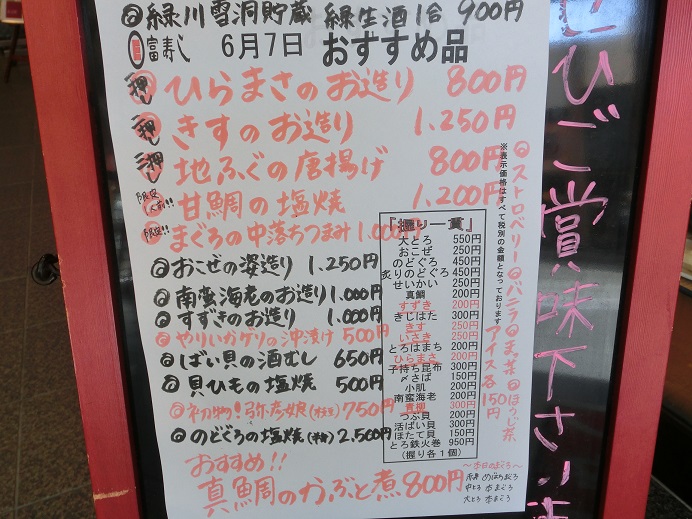 緑川雪洞貯蔵 緑生酒1合 900円
富寿し 6月7日 おすすめ品
一押し ひらまさのお造り 800円
二押し きすのお造り 1.250円
三押し 地ふぐの唐揚げ 800円
甘鯛の塩焼 1.200円
限定!! まぐろの中落ちつまみ 1.000円
おこぜの姿造り 1.250円
南蛮海老のお造り 1.000円
すずきのお造り 1.000円
やりいかゲソの沖漬け 500円
ばい貝の酒むし 650円
貝ひもの塩焼 500円
初物!弥彦娘(枝豆) 750円
のどぐろの塩焼(半身) 2,500円
おすすめ!!
真鯛のかぶと煮 800円
『握り一貫』
大とろ 550円
おこぜ 200円
のどぐろ 450円
炙りのどぐろ 450円
せいかい 250円
真鯛 200円
すずき 200円
きじはた 300円
きす 250円
いさき 250円
とろはまち 200円
ひらまさ 200円
子持ち昆布 300円
〆さば 150円
小肌 200円
南蛮海老 200円
300円
つぶ貝 200円
活ばい貝 300円
ほたて貝 150円
とろ鉄火巻 950円
(握り各1個)
※表示価格はすべて税別の金額となっております
ストロベリー バニラ 抹茶 ほうじ茶
アイス各150円
〜本日のまぐろ〜
赤身 めばちまぐろ
中とろ 本まぐろ
大とろ 本まぐろ
ぜひご賞味下さい